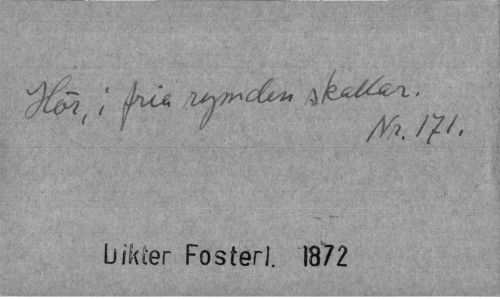 Hör, i fria rymden skallar.
Nr. 171.
Dikter Fosterl. 1872